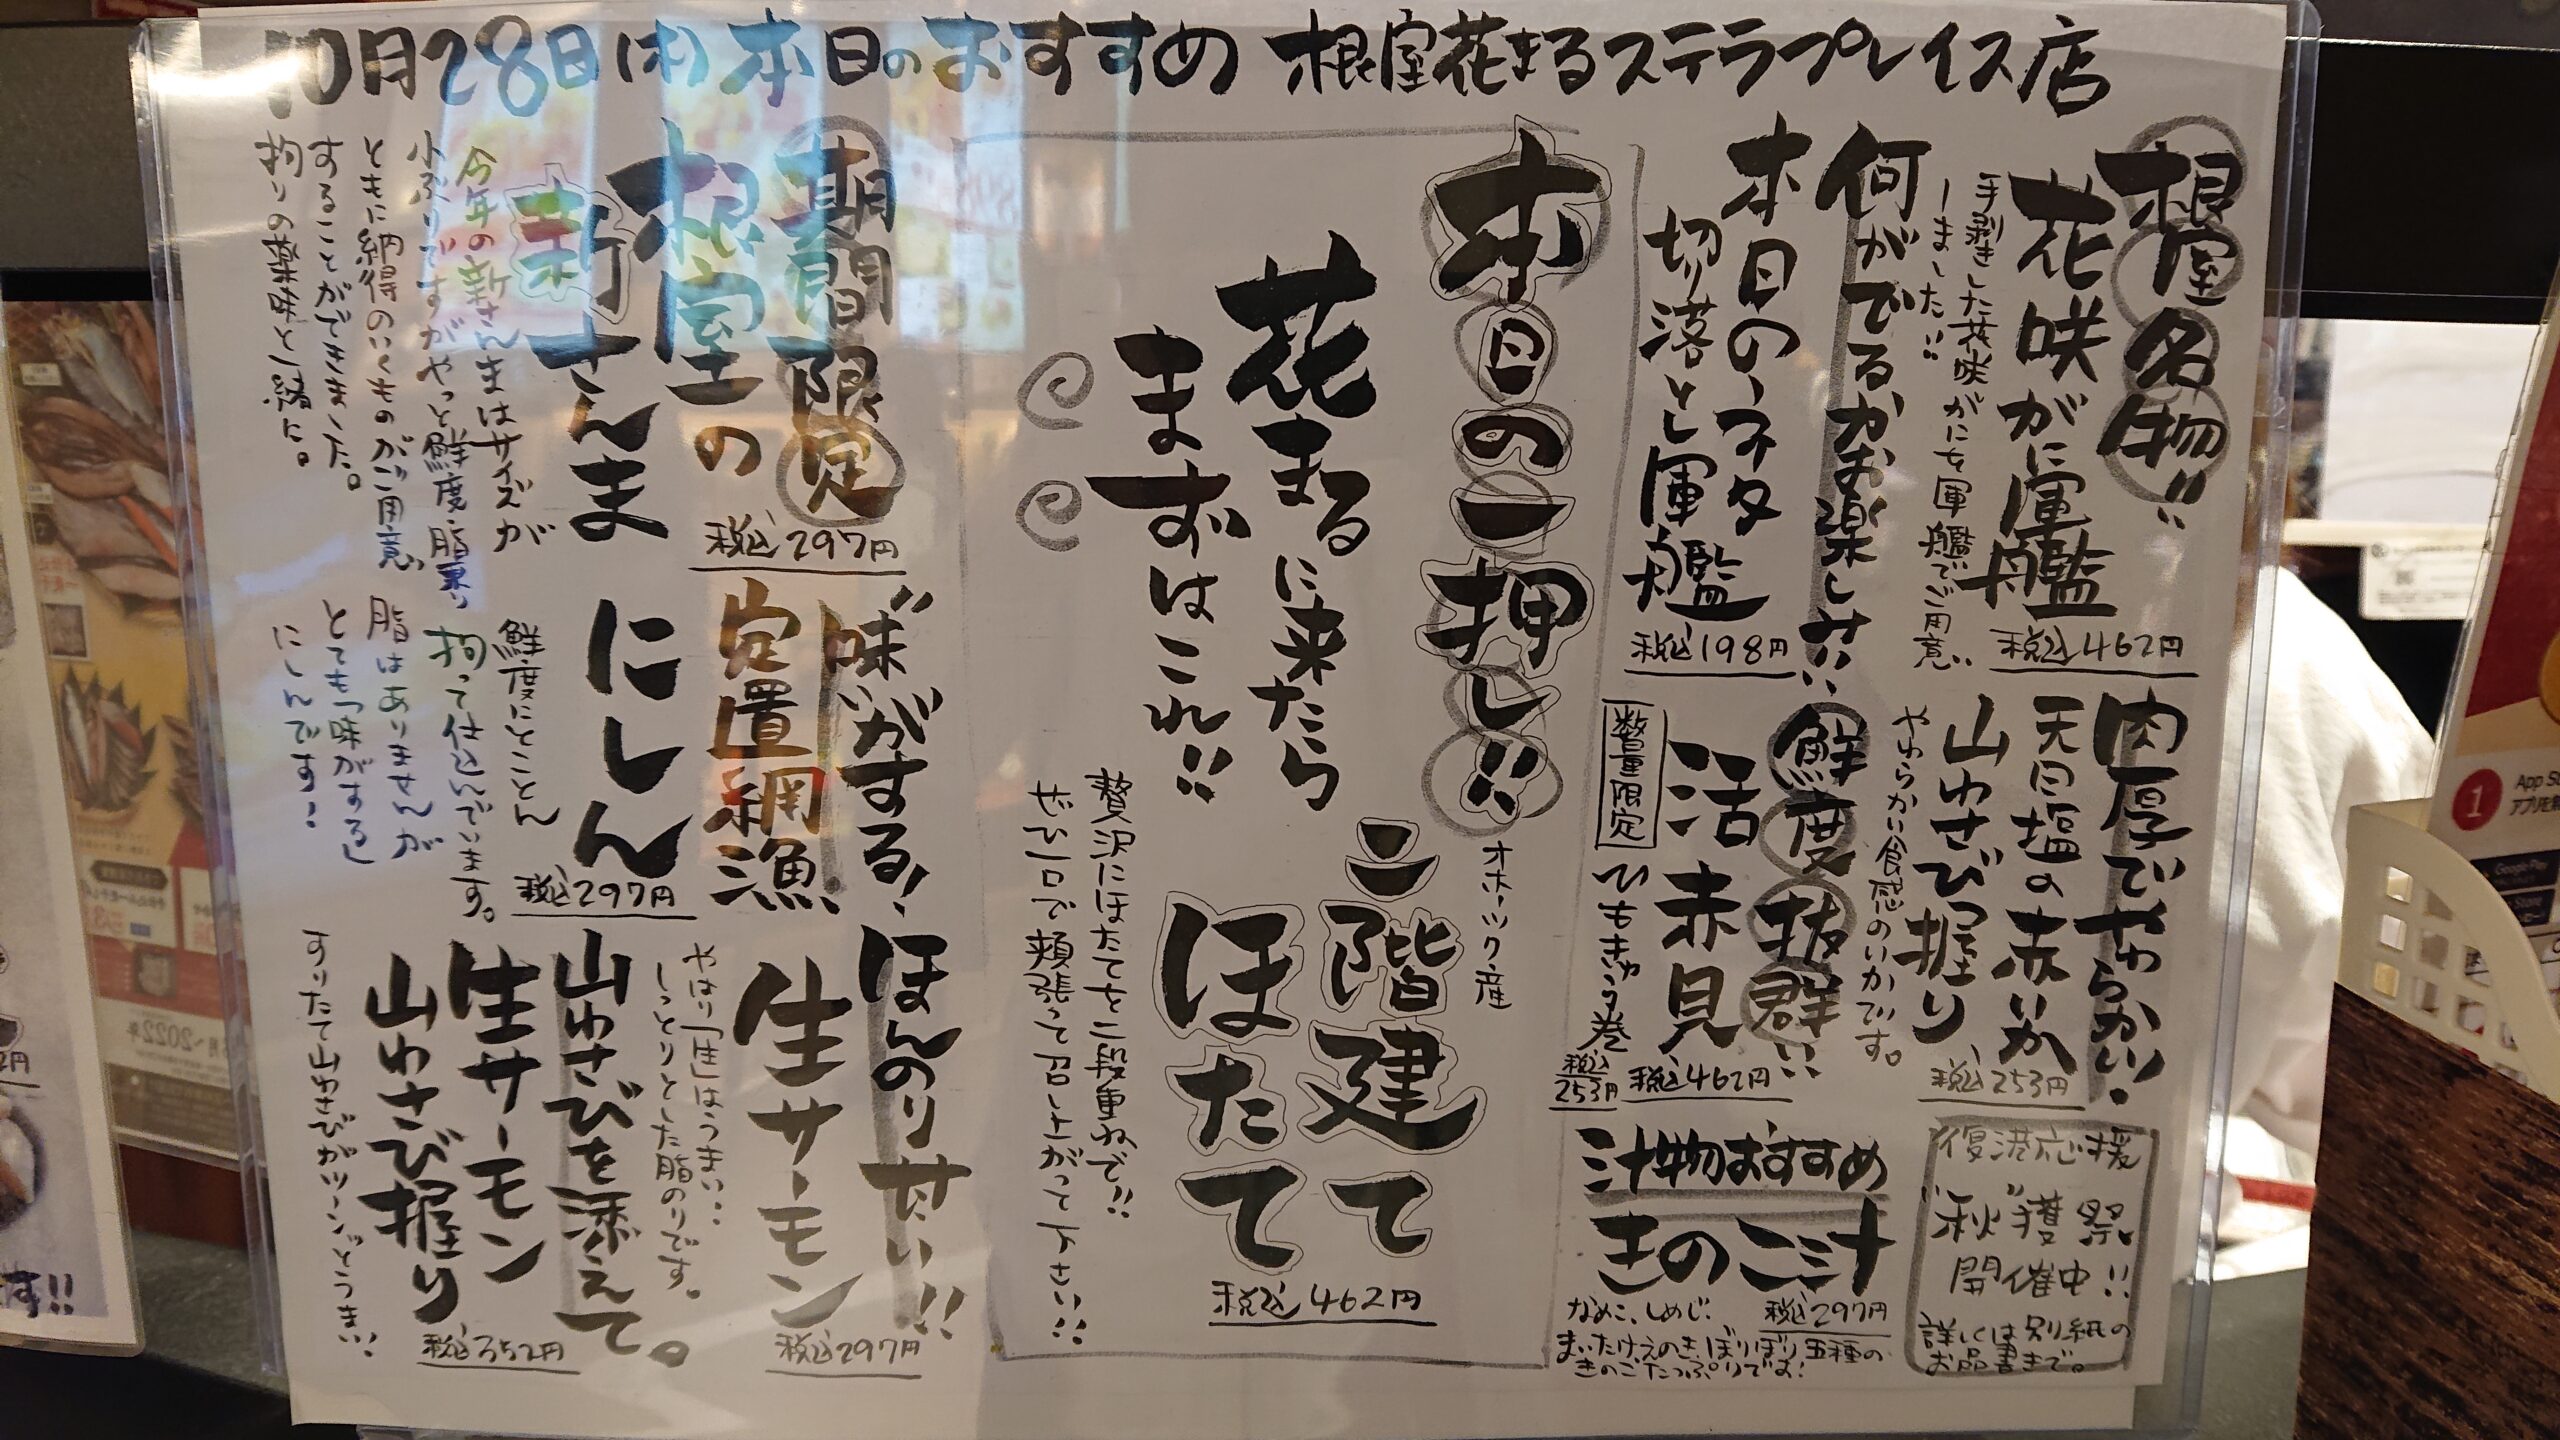 10月28日(木)本日のおすすめ 根室花まるステラプレイス店
根室名物!!
花咲がに軍艦
税込462円
手剥きした花咲がにを軍艦でご用意
しました!!
何がでるかお楽しみ!!
本日のネタ
切り落とし軍艦
税込198円
肉厚でやわらかい!
天日塩の赤いか
山わさび握り
税込253円
やわらかい食感のいかです。
鮮度抜群!!
活赤貝
税込462円
数量限定
ひもきゅう巻
税込253円
復港応援
"秋"獲祭
開催中!!
詳しくは別紙の
お品書きまで。
汁物おすすめ
きのこ汁
税込297円
なめこ、しめじ、
まいたけ、えのき、ぼりぼり五種の
きのこたっぷりです!
本日の一押し!!
花まるに来たら
まずはこれ!!
オホーツク産
二階建て
ほたて
税込462円
贅沢にほたてを二段重ねで!!
ぜひ一口で頬張って召し上がって下さい!!
期間限定
根室の
新さんま
税込297円
今年の新さんまはサイズが
小ぶりですがやっと鮮度・脂乗り
ともに納得のいくものがご用意
することができました。
拘りの薬味と一緒に。
"味"がする!
定置網漁
にしん
税込297円
鮮度にとことん
拘って仕込んでいます。
脂はありませんが
とても「味がする」
にしんです!
ほんのり甘い!!
生サーモン
税込297円
やはり「生」はうまい…
しっとりとした脂のりです。
山わさびを添えて。
生サーモン
山わさび握り
税込352円
すりたて山わさびがツーンッとうまい!
す!!
2円
月~2022年
1
App St
Google Play